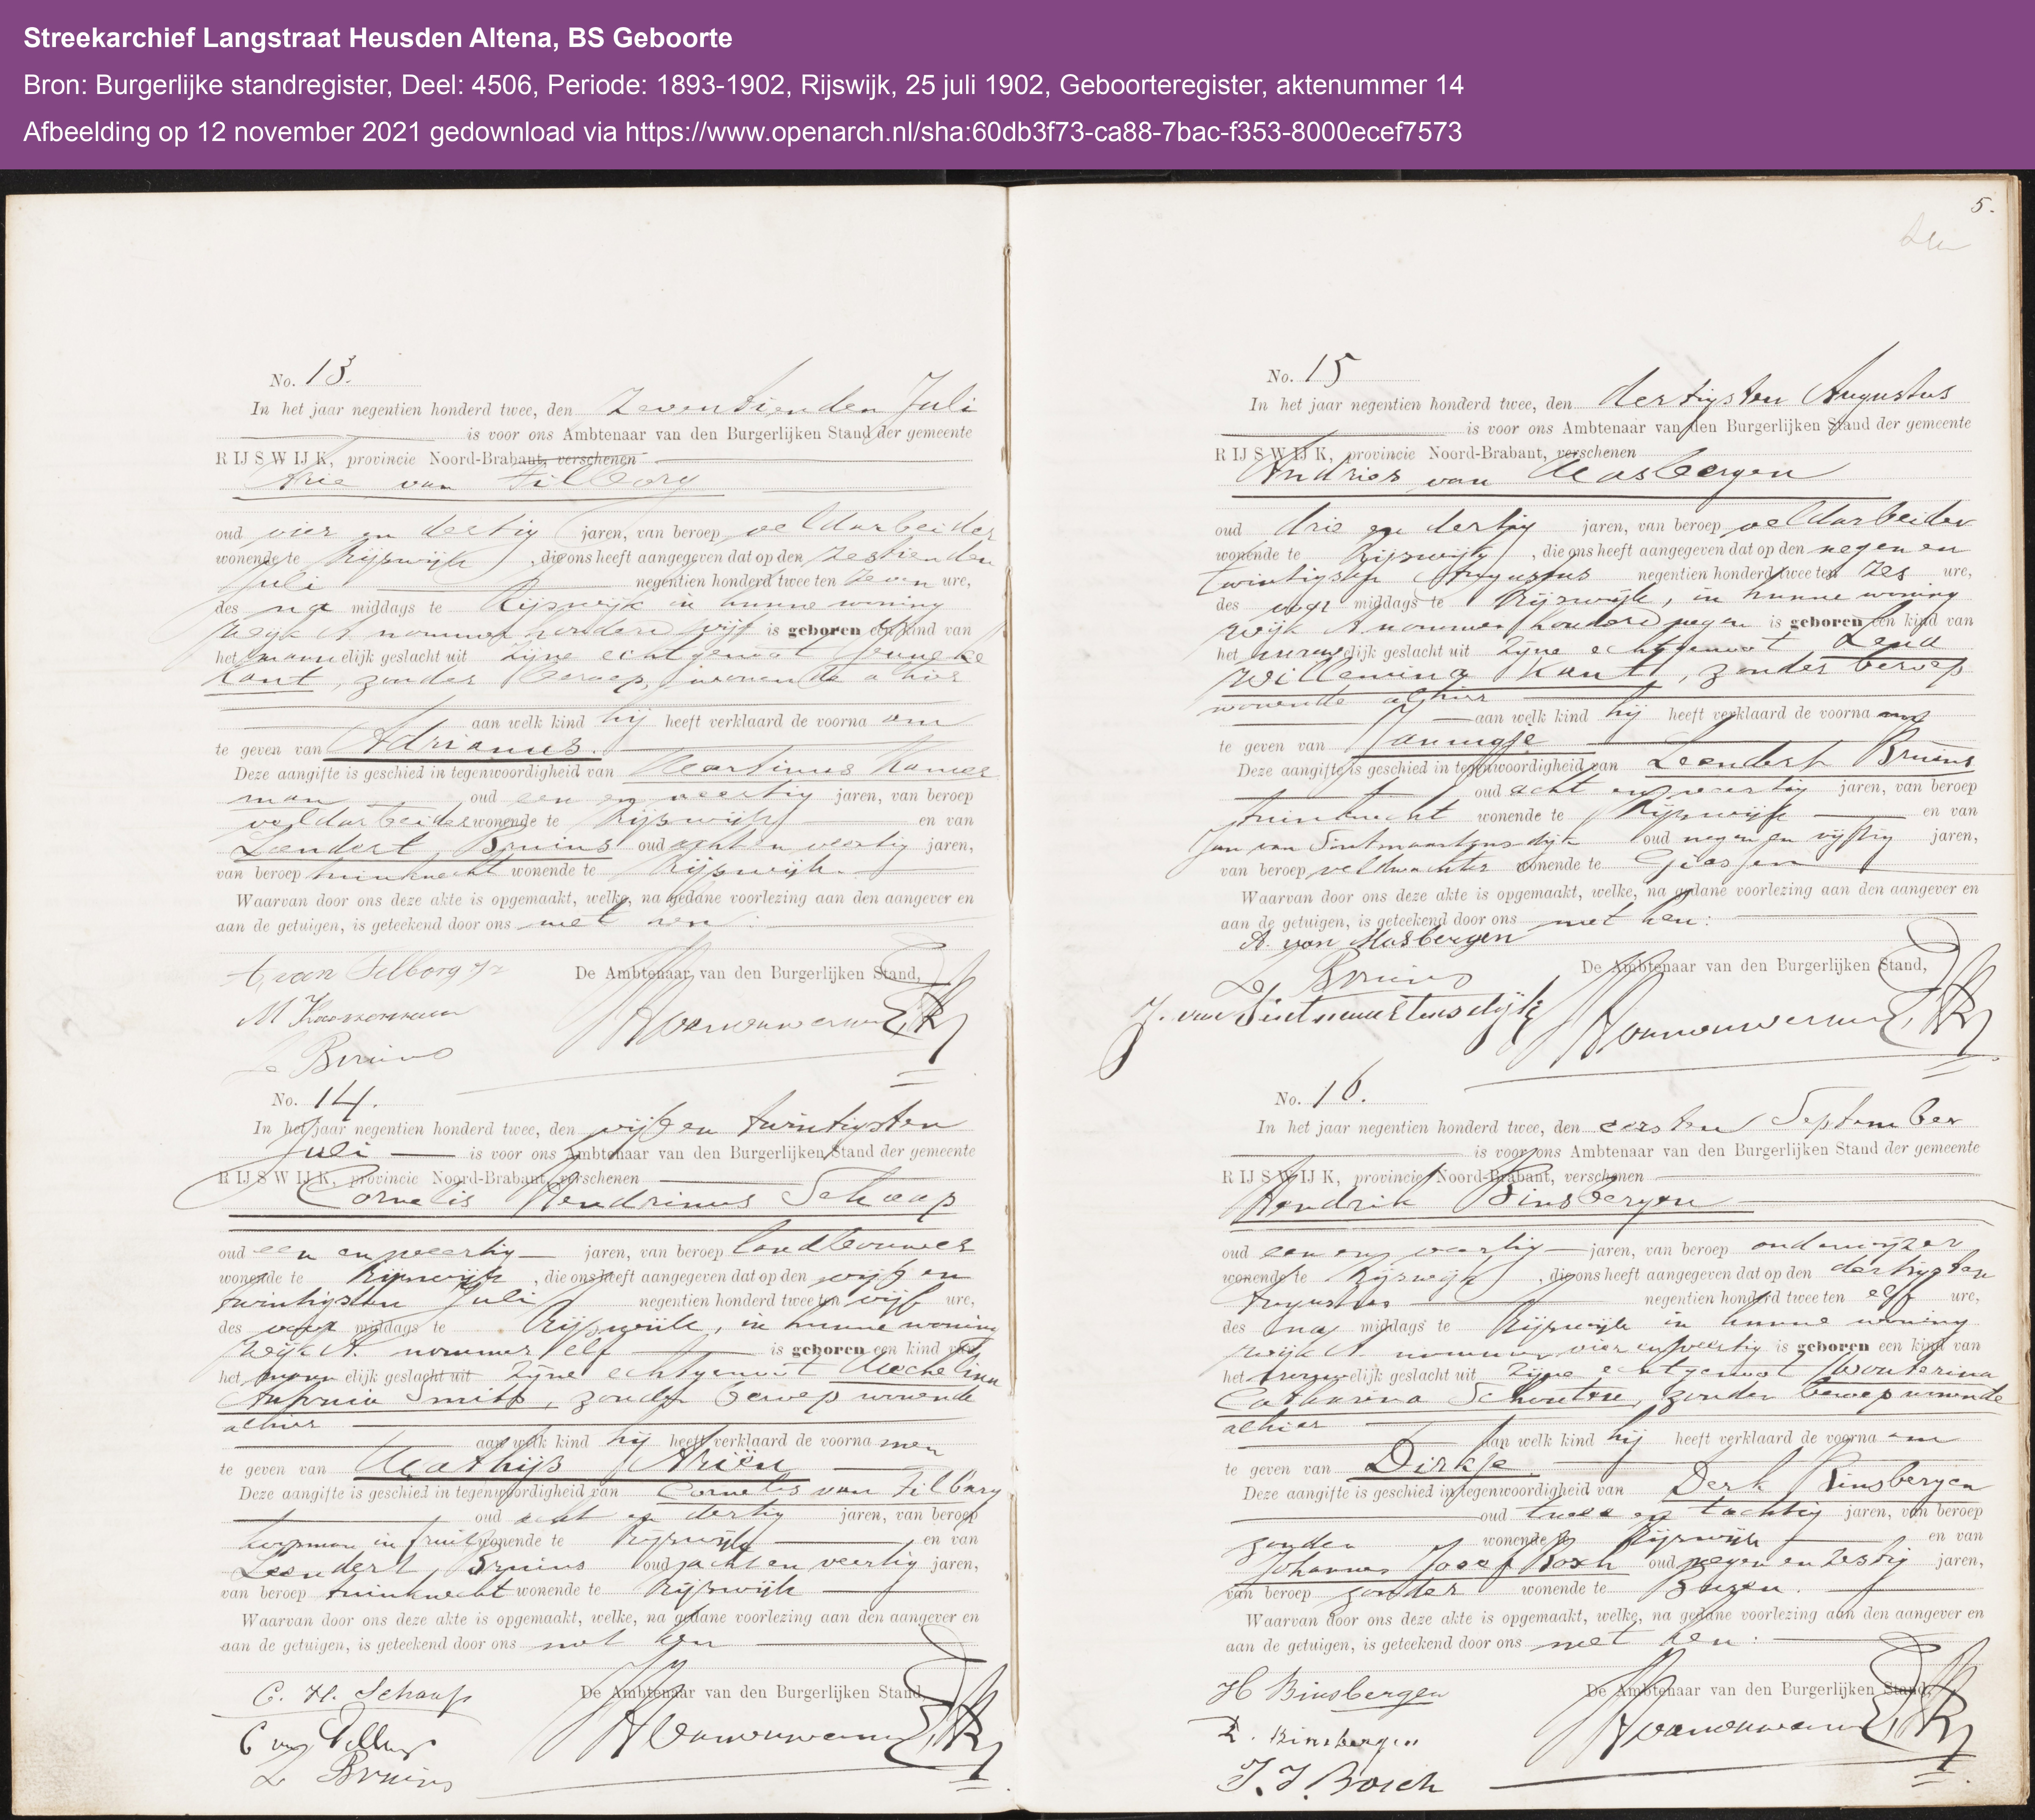 Streekarchief Langstraat Heusden Altena, BS Geboorte
Bron: Burgerlijke standregister, Deel: 4506, Periode: 1893-1902, Rijswijk, 25 juli 1902, Geboorteregister, aktenummer 14
Afbeelding op 12 november 2021 gedownload via https://www.openarch.nl/sha:60db3f73-ca88-7bac-f353-8000ecef7573
No. 13.
In het jaar negentien honderd twee, den zeventienden Juli
is voor ons Ambtenaar van den Burgerlijken Stand der gemeente
RIJSWIJK, provincie Noord-Brabant, verschenen
Arie van Tilborg
oud vier en dertig jaren, van beroep veldarbeider
wonende te Rijswijk, die ons heeft aangegeven dat op den zestienden
Juli negentien honderd twee ten zeven ure,
des na middags te Rijswijk in hunne woning
wijk A nommer honderd vijf is geboren een kind van
het mannelijk geslacht uit zijne echtgenoot Janneke
Kant, zonder beroep, wonende alhier
aan welk kind hij heeft verklaard de voornaam
te geven van Adrianus.
Deze aangifte is geschied in tegenwoordigheid van Martinus Kamer
man oud een en veertig jaren, van beroep
veldarbeider wonende te Rijswijk en van
Leendert Bruins oud acht en veertig jaren,
van beroep tuinknecht wonende te Rijswijk.
Waarvan door ons deze akte is opgemaakt, welke, na gedane voorlezing aan den aangever en
aan de getuigen, is geteekend door ons met hen:
A. van Tilborg
De Ambtenaar van den Burgerlijken Stand,
M Kamerman
L Bruins
No. 14.
In het jaar negentien honderd twee, den vijf en twintigsten
Juli is voor ons Ambtenaar van den Burgerlijken Stand der gemeente
RIJSWIJK, provincie Noord-Brabant, verschenen
Cornelis Hendrinus Schaap
oud een en veertig jaren, van beroep landbouwer
wonende te Rijswijk, die ons heeft aangegeven dat op den vijf en
twintigsten Juli negentien honderd twee ten vijf ure,
des voor middags te Rijswijk, in hunne woning
wijk A. nommer elf is geboren een kind van
het mannelijk geslacht uit zijne echtgenoot Machelina
Antonia Smits, zonder beroep wonende
alhier
aan welk kind hij heeft verklaard de voornamen
te geven van Mathijs Ariën
Deze aangifte is geschied in tegenwoordigheid van Cornelis van Tilborg
oud acht en dertig jaren, van beroep
koopman in fruit wonende te Rijswijk en van
Leendert Bruins oud acht en veertig jaren,
van beroep tuinknecht wonende te Rijswijk
Waarvan door ons deze akte is opgemaakt, welke, na gedane voorlezing aan den aangever en
aan de getuigen, is geteekend door ons met hen
C. H. Schaap
De Ambtenaar van den Burgerlijken Stand,
C van Tilborg
L Bruins
5.
No. 15
In het jaar negentien honderd twee, den dertigsten Augustus
is voor ons Ambtenaar van den Burgerlijken Stand der gemeente
RIJSWIJK, provincie Noord-Brabant, verschenen
Andries van Masbergen
oud drie en dertig jaren, van beroep veldarbeider
wonende te Rijswijk, die ons heeft aangegeven dat op den negen en
twintigsten Augustus negentien honderd twee ten zes ure,
des voor middags te Rijswijk, in hunne woning
wijk A nommer honderd negen is geboren een kind van
het vrouwelijk geslacht uit zijne echtgenoot Lena
Willemina Kant, zonder beroep
wonende alhier
aan welk kind hij heeft verklaard de voornaam
te geven van Jannigje
Deze aangifte is geschied in tegenwoordigheid van Leendert Bruins
oud acht en veertig jaren, van beroep
tuinknecht wonende te Rijswijk en van
Jan van Sintmaartensdijk oud negen en vijftig jaren,
van beroep veldwachter wonende te Giessen
Waarvan door ons deze akte is opgemaakt, welke, na gedane voorlezing aan den aangever en
aan de getuigen, is geteekend door ons met hen:
A. van Masbergen
De Ambtenaar van den Burgerlijken Stand,
L Bruins
J. van Sintmaartensdijk
No. 16.
In het jaar negentien honderd twee, den eersten September
is voor ons Ambtenaar van den Burgerlijken Stand der gemeente
RIJSWIJK, provincie Noord-Brabant, verschenen
Hendrik Binsbergen
oud een en veertig jaren, van beroep onderwijzer
wonende te Rijswijk, die ons heeft aangegeven dat op den dertigsten
Augustus negentien honderd twee ten elf ure,
des na middags te Rijswijk in hunne woning
wijk A nommer vier en veertig is geboren een kind van
het vrouwelijk geslacht uit zijne echtgenoot Wouterina
Catharina Schouten, zonder beroep wonende
alhier
aan welk kind hij heeft verklaard de voornaam
te geven van Dirkje
Deze aangifte is geschied in tegenwoordigheid van Derk Binsbergen
oud twee en tachtig jaren, van beroep
zonder wonende te Rijswijk en van
Johannes Josef Bosch oud negen en zestig jaren,
van beroep zonder wonende te Buren.
Waarvan door ons deze akte is opgemaakt, welke, na gedane voorlezing aan den aangever en
aan de getuigen, is geteekend door ons met hen:
H Binsbergen
De Ambtenaar van den Burgerlijken Stand,
D. Binsbergen
J. J. Bosch